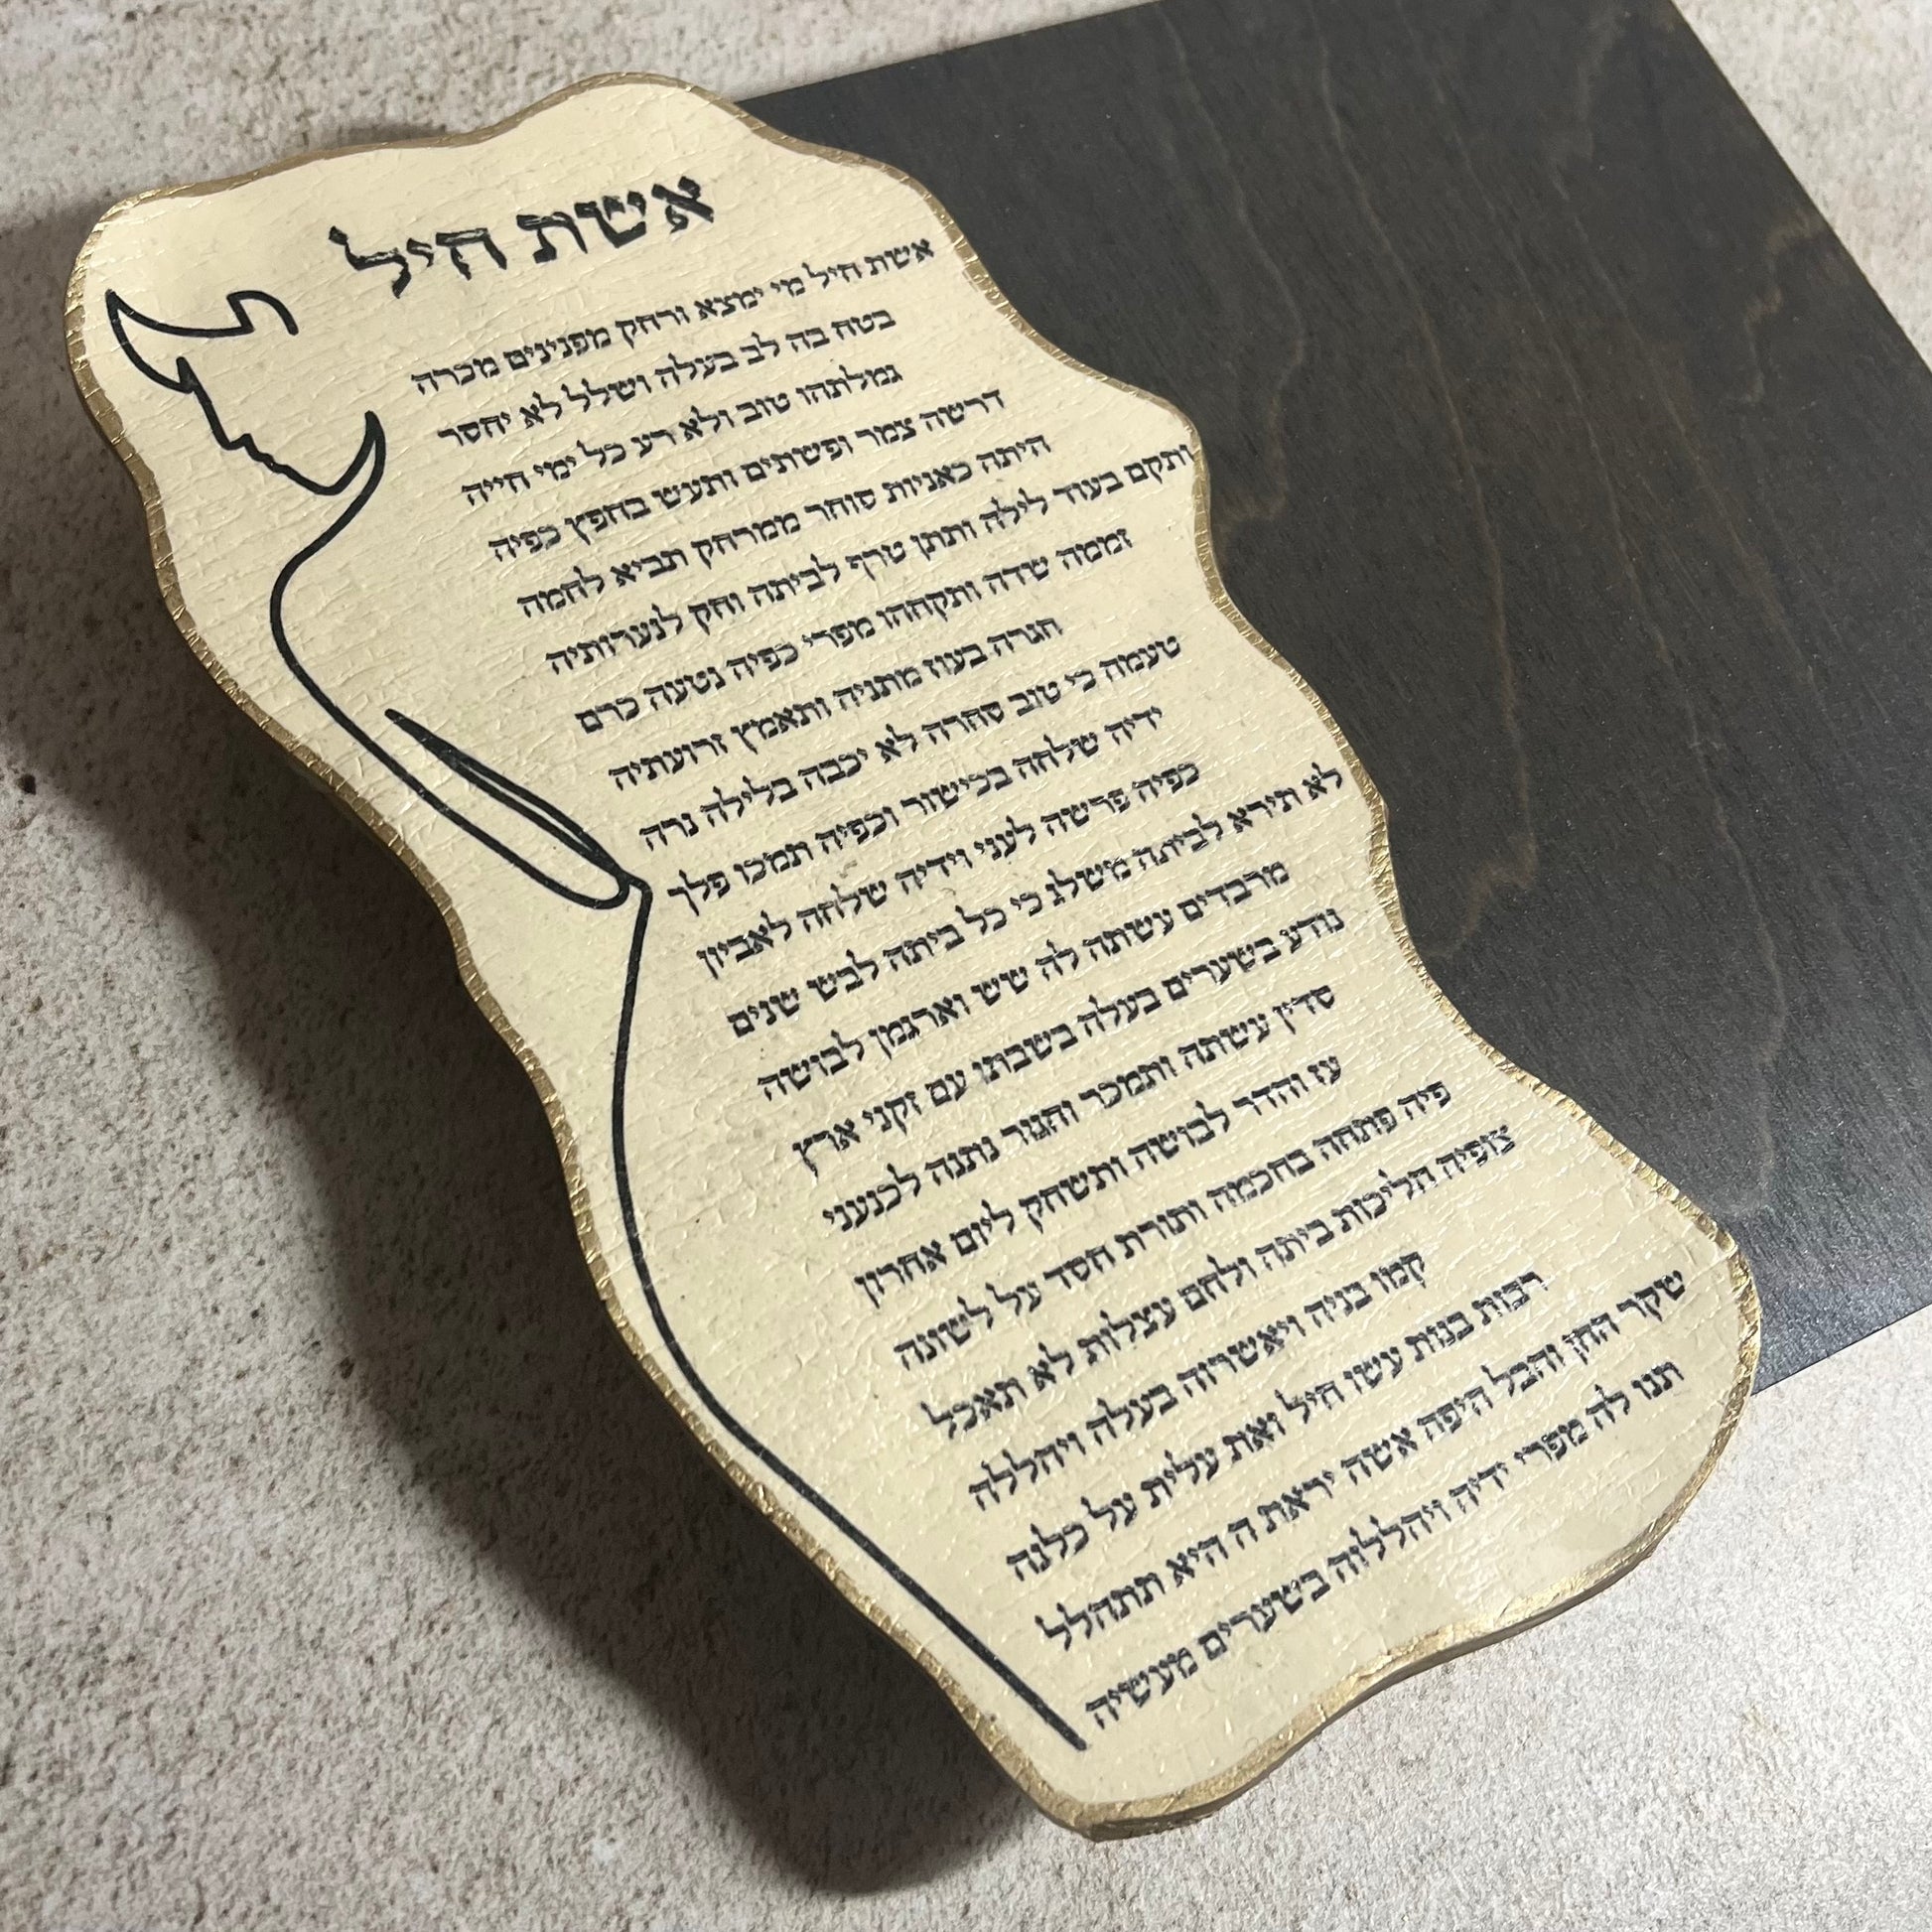 אשת חיל
אשת חיל מי ימצא ורחק מפנינים מכרה
בטח בה לב בעלה ושלל לא יחסר
גמלתהו טוב ולא רע כל ימי חייה
דרשה צמר ופשתים ותעש בחפץ כפיה
היתה כאניות סוחר ממרחק תביא לחמה
ותקם בעוד לילה ותתן טרף לביתה וחק לנערותיה
זממה שדה ותקחהו מפרי כפיה נטעה כרם
חגרה בעוז מתניה ותאמץ זרועתיה
טעמה כי טוב סחרה לא יכבה בלילה נרה
ידיה שלחה בכישור וכפיה תמכו פלך
כפיה פרשה לעני וידיה שלחה לאביון
לא תירא לביתה משלג כי כל ביתה לבש שנים
מרבדים עשתה לה שש וארגמן לבושה
נודע בשערים בעלה בשבתו עם זקני ארץ
סדין עשתה ותמכר וחגור נתנה לכנעני
עז והדר לבושה ותשחק ליום אחרון
פיה פתחה בחכמה ותורת חסד על לשונה
צופיה הליכות ביתה ולחם עצלות לא תאכל
קמו בניה ויאשרוה בעלה ויהללה
רבות בנות עשו חיל ואת עלית על כלנה
שקר החן והבל היפה אשה יראת ה היא תתהלל
תנו לה מפרי ידיה ויהללוה בשערים מעשיה